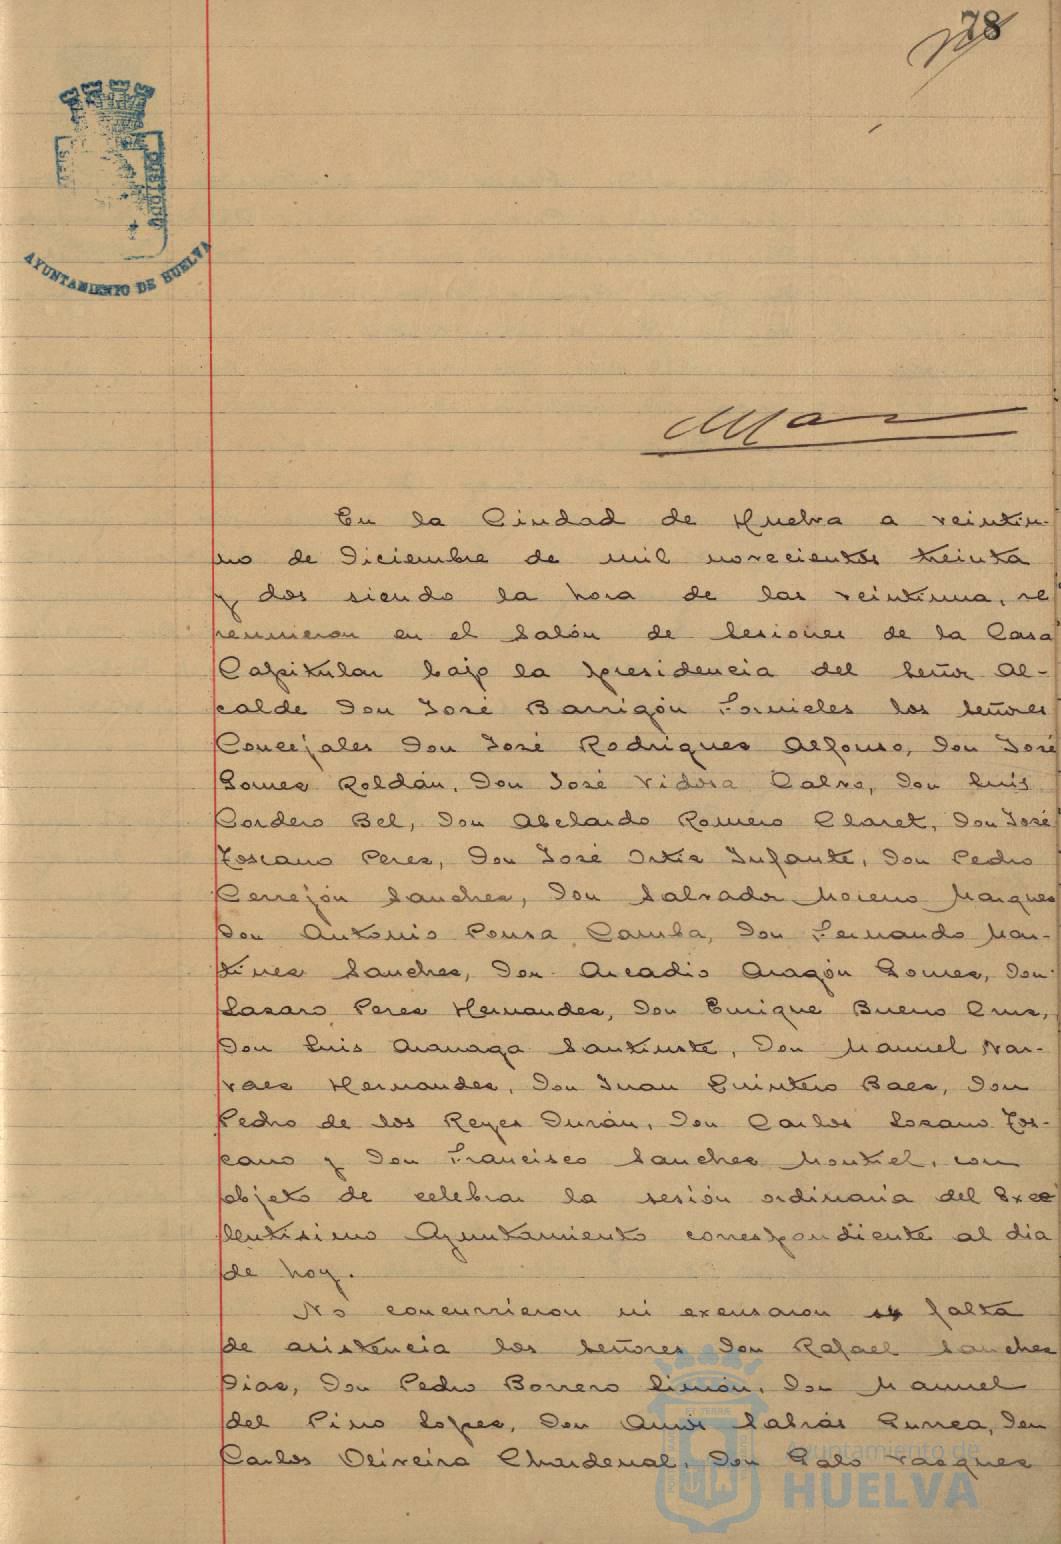 78
AYUNTAMIENTO DE HUELVA
En la Ciudad de Huelva a veintiu-
no de Diciembre de mil novecientos treinta
y dos siendo la hora de las veintiuna, se
reunieron en el Salón de Sesiones de la Casa
Capitular bajo la presidencia del Señor Al-
calde Don José Barrigón Fornieles los Señores
Concejales Don José Rodrigues Alfonso, Don José
Gomes Roldán, Don José Vidosa Calvo, Don Luis
Cordero Bel, Don Abelardo Romero Claret, Don José
Toscano Peres, Don José Ortis Infante, Don Pedro
Cerrejón Sanches, Don Salvador Moreno Marques
Don Antonio Pousa Camba, Don Fernando Mar-
tines Sanches, Don Arcadio Aragón Gomes, Don
Lasaro Peres Hernandes, Don Enrique Bueno Crus,
Don Luis Aranaga Santiuste, Don Manuel Nar-
vaes Hernandes, Don Juan Quintero Baes, Don
Pedro de los Reyes Durán, Don Carlos Losano Tos-
cano y Don Francisco Sanches Montiel, con
objeto de celebrar la sesión ordinaria del Exce
lentisimo Ayuntamiento correspondiente al dia
de hoy.
No concurrieron ni excusaron su falta
de asistencia los Señores Don Rafael Sanches
Dias, Don Pedro Borrero Limón, Don Manuel
del Pino Lopes, Don Amós Sabrás Gurrea, Don
Carlos Oliveira Chardenal, Don Galo Vasques
Ayuntamiento de
HUELVA